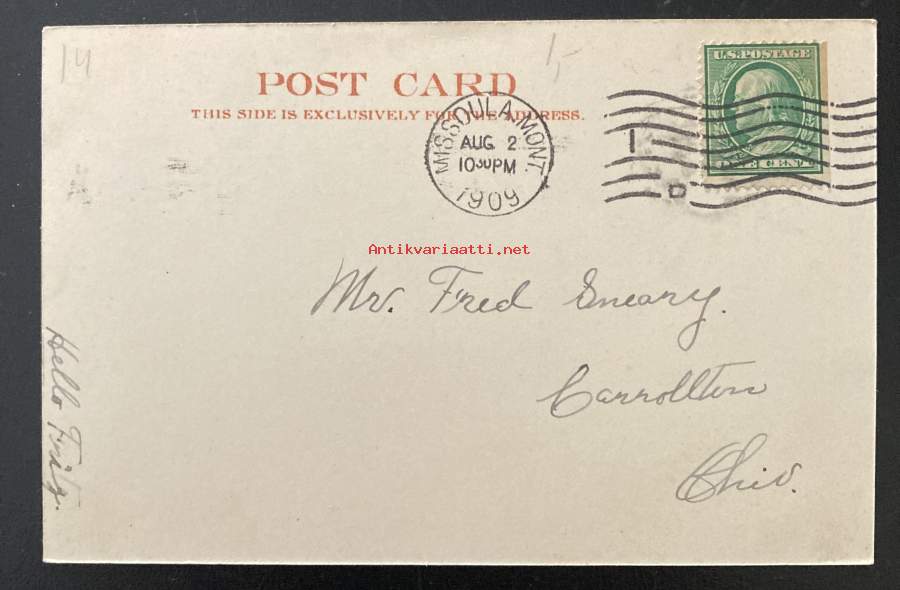 14
1,-
POST CARD
THIS SIDE IS EXCLUSIVELY FOR THE ADDRESS.
MISSOULA, MONT.
AUG 2
10 30 PM
1909
1
D
U.S. POSTAGE
ONE CENT
Antikvariaatti.net
Mr. Fred Sneary.
Carrollton
Ohio.
Hello Fritz.